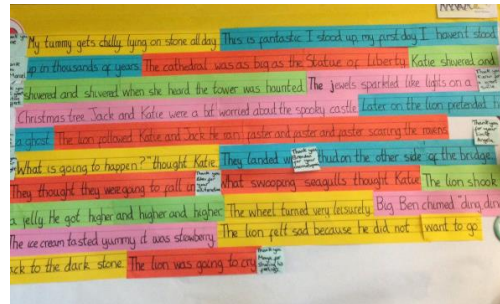 My tummy gets chilly lying on stone all day. This is fantastic I stood up, my first day I haven't stood
up in thousands of years. The cathedral was as big as the Statue of Liberty. Katie shivered and
shivered and shivered when she heard the tower was haunted. The jewels sparkled like lights on a
Christmas tree. Jack and Katie were a bit worried about the spooky castle. Later on the lion pretended
a ghost. The lion followed Katie and Jack he ran faster and faster and faster scaring the ravens.
What is going to happen?" thought Katie. They landed thud on the other side of the bridge
They thought they were going to fall in What swooping seagulls thought Katie The lion shook
a jelly. He got higher and higher and higher The wheel turned very leisurely. Big Ben chimed "ding
The ice cream tasted yummy it was The lion felt sad because he did not want to go
to the dark stone. The lion was going to cry.